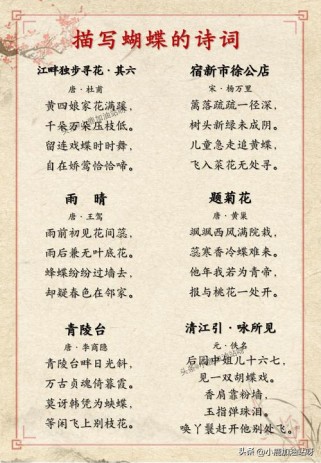 描写蝴蝶的诗词
江畔独步寻花·其六
唐·杜甫
黄四娘家花满蹊，
千朵万朵压枝低。
留连戏蝶时时舞，
自在娇莺恰恰啼。
宿新市徐公店
宋·杨万里
篱落疏疏一径深，
树头新绿未成阴。
儿童急走追黄蝶，
飞入菜花无处寻。
雨 晴
唐·王驾
雨前初见花间蕊，
雨后兼无叶底花。
蜂蝶纷纷过墙去，
却疑春色在邻家。
题菊花
唐·黄巢
飒飒西风满院栽，
蕊寒香冷蝶难来。
他年我若为青帝，
报与桃花一处开。
青陵台
唐·李商隐
青陵台畔日光斜，
万古贞魂倚暮霞。
莫讶韩凭为蛱蝶，
等闲飞上别枝花。
清江引·咏所见
元·佚名
后园中姐儿十六七，
见一双蝴蝶戏。
香肩靠粉墙，
玉指弹珠泪。
唤丫鬟赶开他别处飞。
头条 @小鹿加油站呀